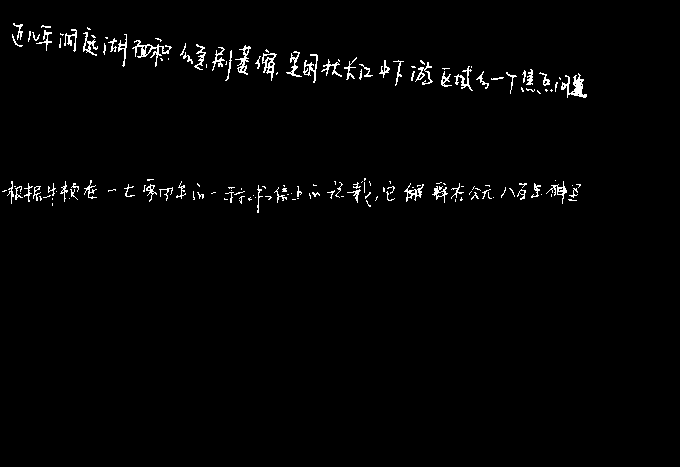 近几年洞庭湖面积的急剧萎缩,是困扰长江中下游区域的一个焦点问题
根据牛顿在一七零四年的一封书信上的记载,它解释在公元八百年神圣